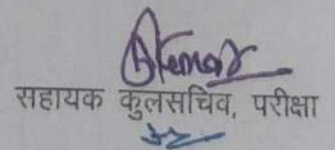 सहायक कुलसचिव, परीक्षा